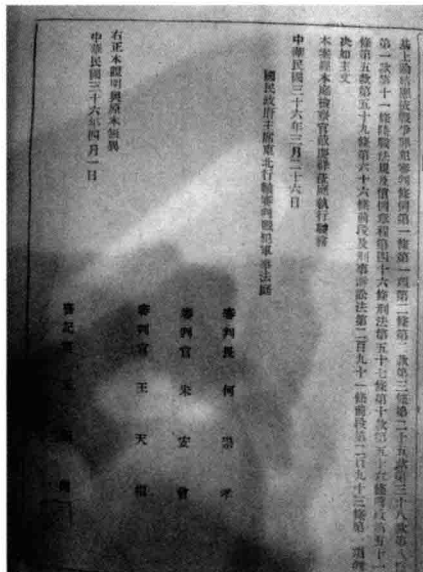 基上論結應依戰爭罪犯審判條例第一條第一項第二條第二款第三條第二十五款第三十八款第
第一款第十一條陸戰法規及慣例章程第四十六條刑法第五十七條第十款第五十六條前段第五十一
條第五款第五十九條第六十六條前段及刑事訴訟法第二百九十一條前段第二百九十三條第一項判
決如主文
本案經本庭檢察官 蒞庭執行職務
中華民國三十六年三月二十六日
國民政府主席東北行轅審判戰犯軍事法庭
審判長 何崇孝
審判官 朱安會
審判官 王天
書記官
右正本證明與原本無異
中華民國三十六年四月一日